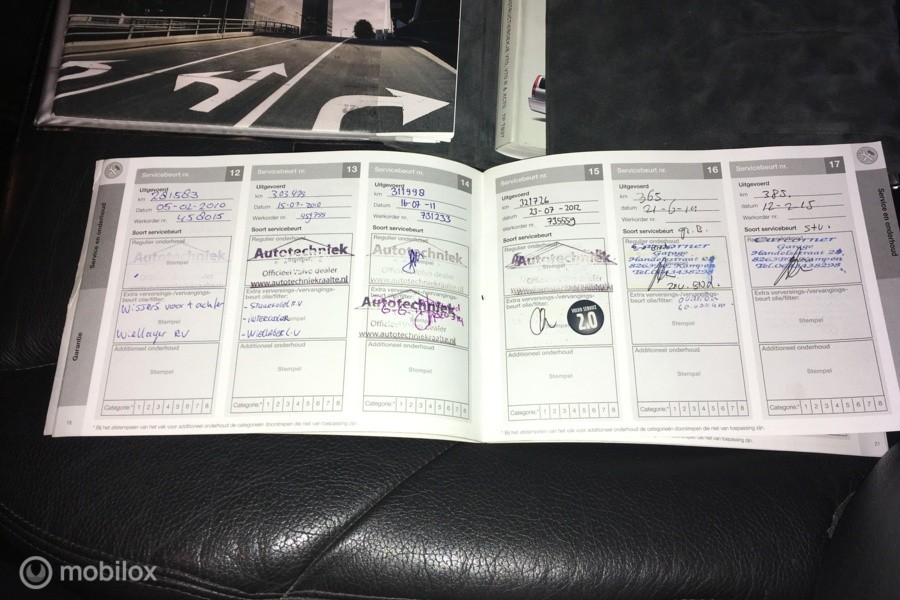 Service en onderhoud
Garantie
Servicebeurt nr. 12
Uitgevoerd
km 281583
Datum 05-02-2010
Werkorder nr. 458015
Soort servicebeurt
Regulier onderhoud
Stempel
Extra verversings-/vervangings-
beurt olie/filter:
Wissers voor + achter
Stempel
Wiellager RV
Additioneel onderhoud
Stempel
Categorie:* 1 2 3 4 5 6 7 8
Servicebeurt nr. 13
Uitgevoerd
km 303475
Datum 15-07-2010
Werkorder nr.
Soort servicebeurt
Regulier onderhoud
Autotechniek
Stempel
Officieel Volvo dealer
www.autotechniekraalte.nl
Extra verversings-/vervangings-
beurt olie/filter:
Stempel
- INTERCOOLER
- WIELLAGER L.V
Additioneel onderhoud
Stempel
Categorie:* 1 2 3 4 5 6 7 8
Servicebeurt nr. 14
Uitgevoerd
km 311998
Datum 18-07-11
Werkorder nr. 731233
Soort servicebeurt
Regulier onderhoud
Autotechniek
Stempel
Autotechniek
Stempel
www.autotechniekraalte.nl
Additioneel onderhoud
Stempel
Categorie:* 1 2 3 4 5 6 7 8
* Bij het afstempelen van het vak voor additioneel onderhoud de categorieën doorstrepen die niet van toepassing zijn.
18
Servicebeurt nr. 15
Uitgevoerd
km 321726
Datum 23-07-2012
Werkorder nr. 735559
Soort servicebeurt
Regulier onderhoud
Autotechniek
Stempel
www.autotechniekraalte.nl
Extra verversings-/vervangings-
beurt olie/filter:
Stempel
VOLVO SERVICE
2.0
Additioneel onderhoud
Stempel
Categorie:* 1 2 3 4 5 6 7 8
Servicebeurt nr. 16
Uitgevoerd
km 365.
datum
Werkorder nr. gr.B.
Soort servicebeurt
Regulier onderhoud
Carcorner
Garage
Handelsstraat
Kampen
Extra verversings-/vervangings-
beurt olie/filter:
Stempel
Additioneel onderhoud
Stempel
Categorie:* 1 2 3 4 5 6 7 8
Servicebeurt nr. 17
Uitgevoerd
km 385.
Datum 12-2-15
Werkorder nr.
Soort servicebeurt
Regulier onderhoud
Carcorner
Garage
Handelsstraat
Kampen
Extra verversings-/vervangings-
beurt olie/filter:
Stempel
Additioneel onderhoud
Stempel
Categorie:* 1 2 3 4 5 6 7 8
* Bij het afstempelen van het vak voor additioneel onderhoud de categorieën doorstrepen die niet van toepassing zijn.
21
Service en onderhoud
mobilox